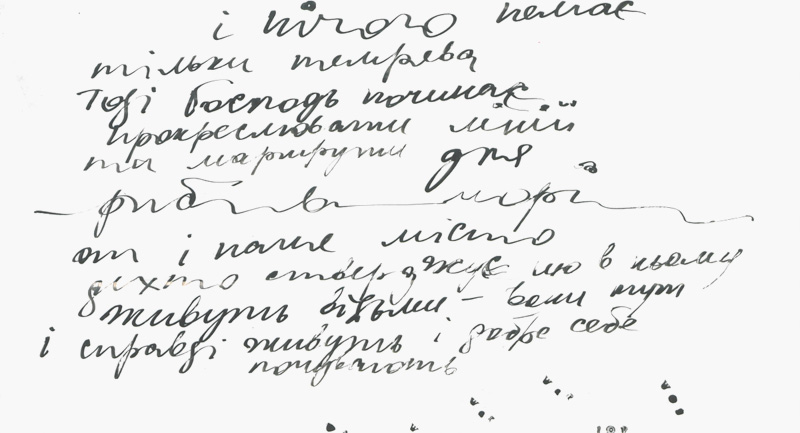 і нічого немає
тільки темрева
Тоді Господь починає
прокреслювати лінії
та маршрути для
риб в морі
от і наше місто
дихто стверджує що в ньому
живуть відьми – вони тут
і справді живуть і добре себе
почувають